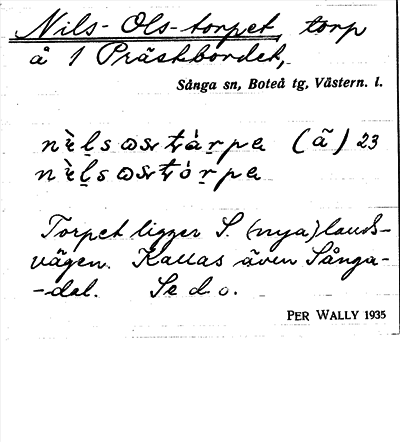 Nils-Ols-torpet, torp
å 1 Präskbordet,
Sånga sn, Boteå tg, Västern. l.
(ä) 23
Torpet ligger S. (nya) lands-
vägen. Kallas även Sånga-
-dal. Se d. o.
PER WALLY 1935